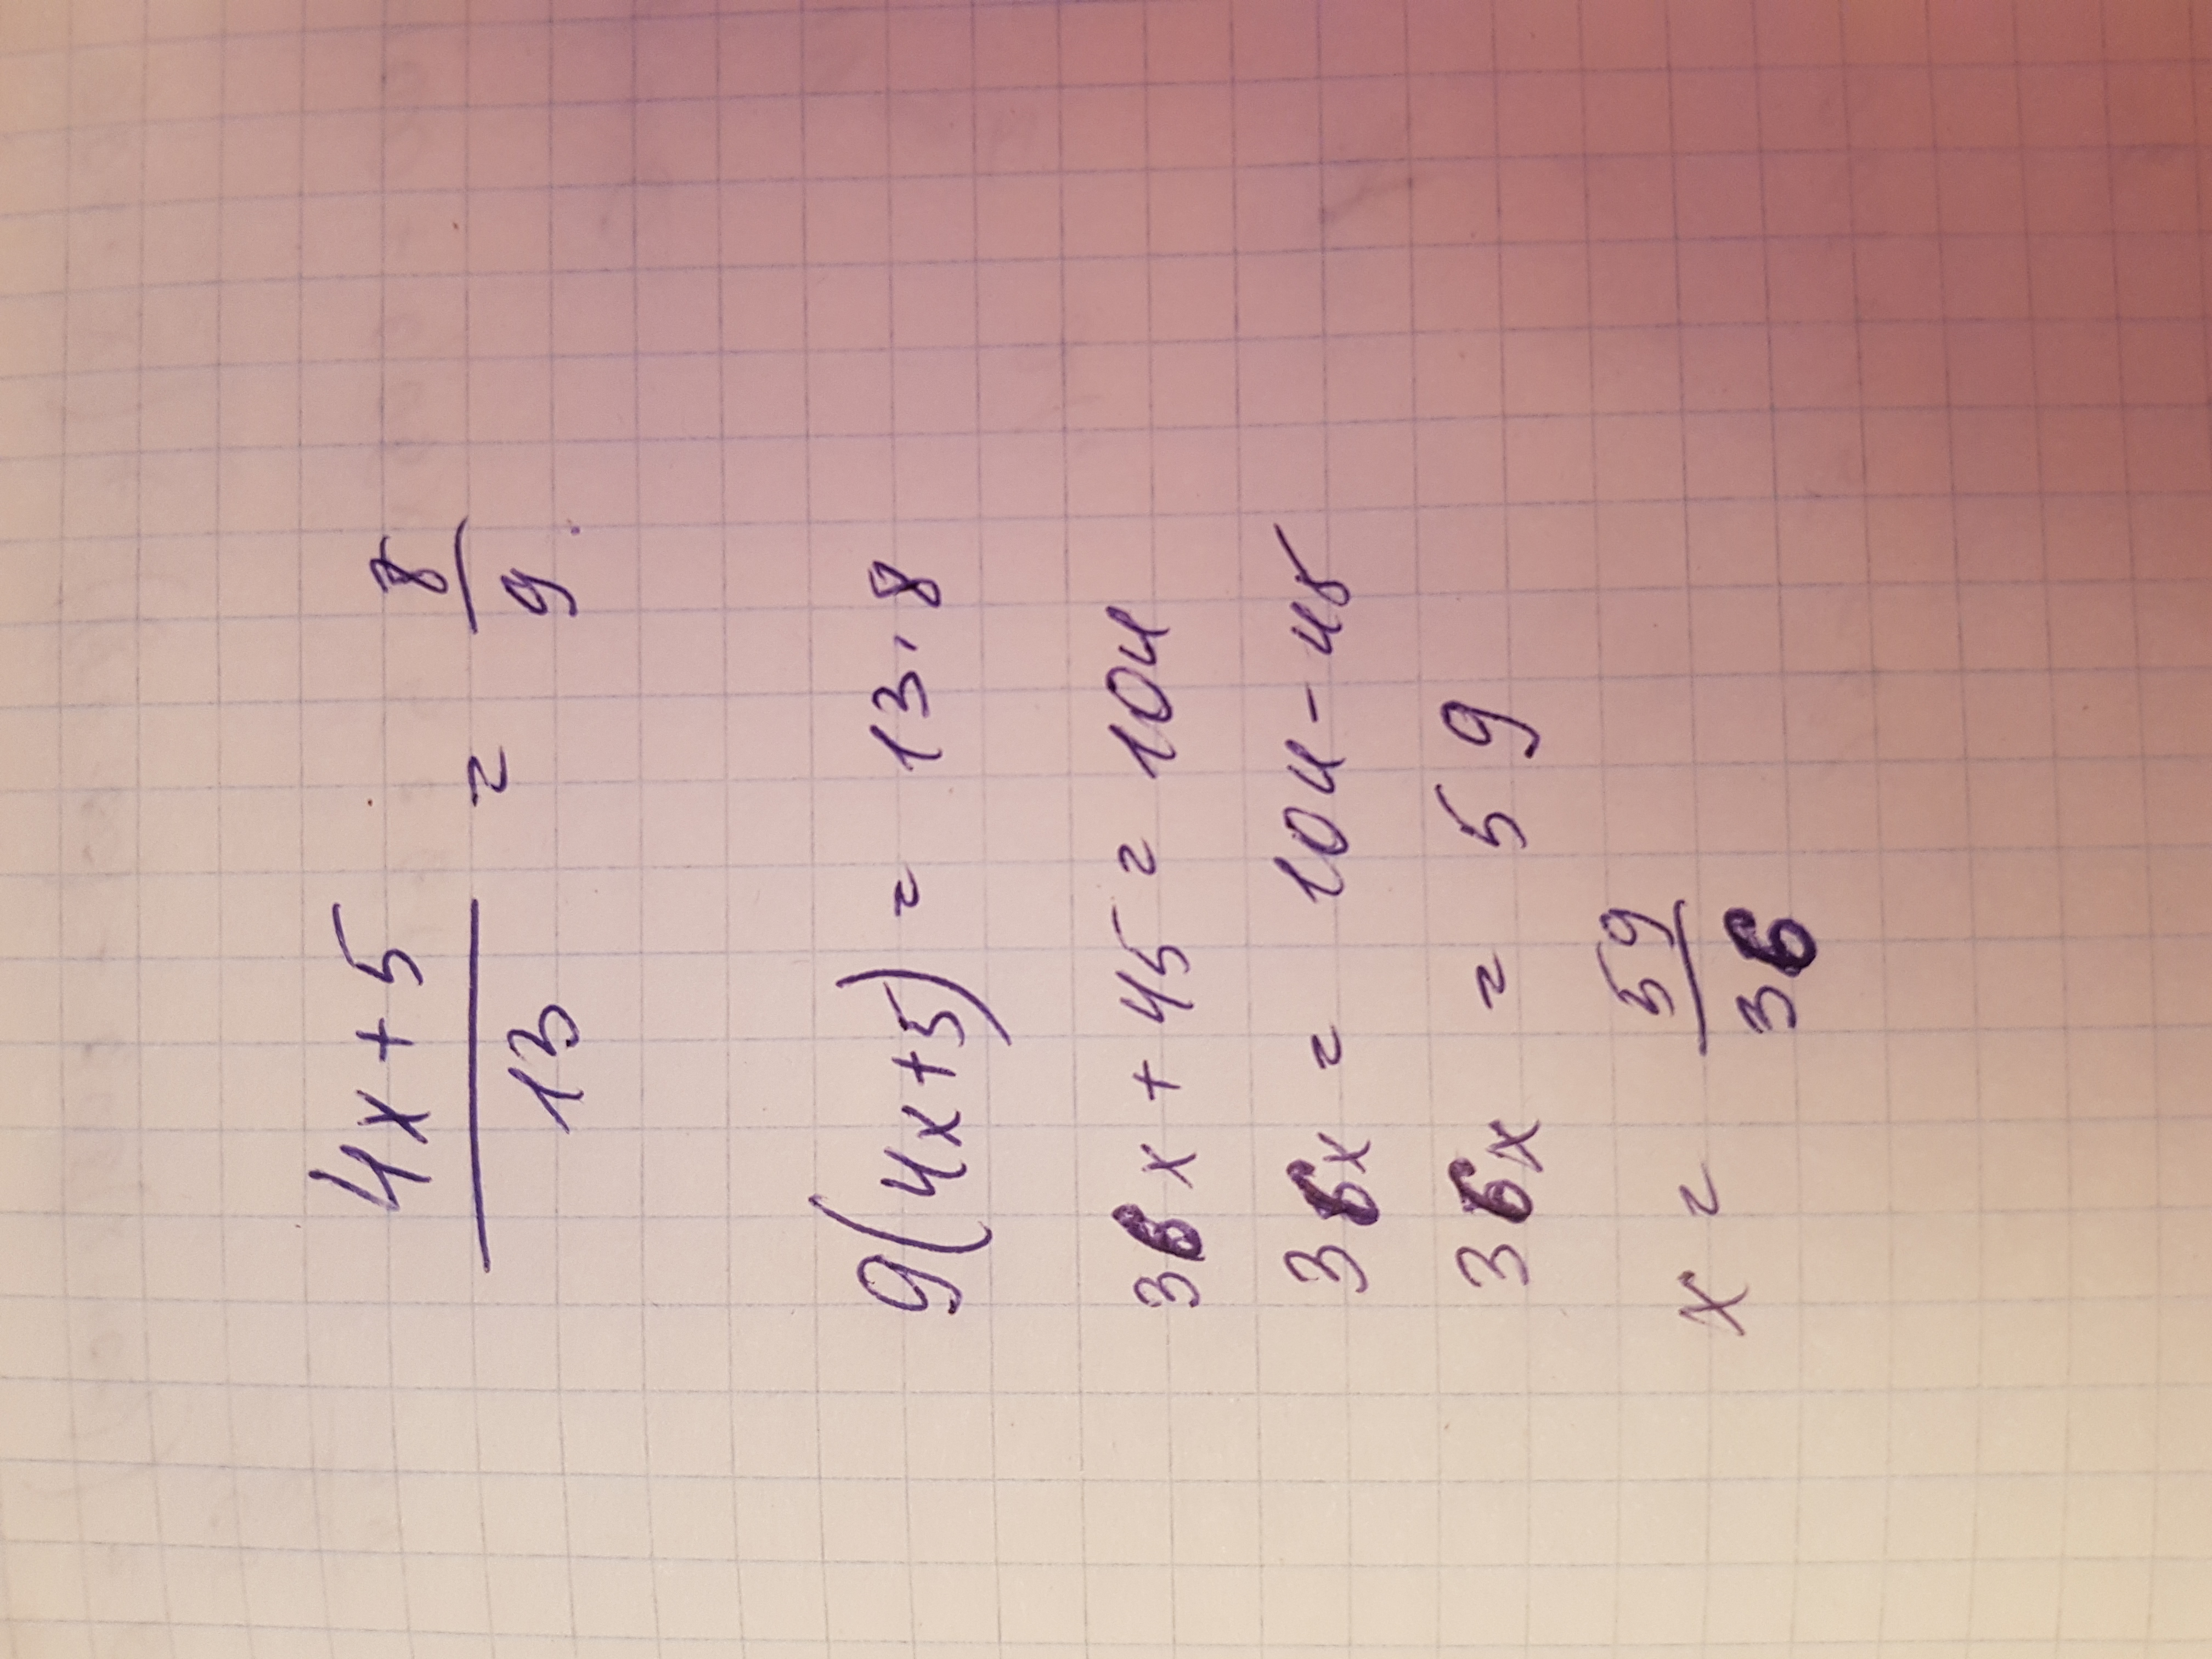 4x+5/13 = 8/9.
9(4x+5) = 13·8
36x+45=104
36x = 104-45
36x = 59
x = 59/36